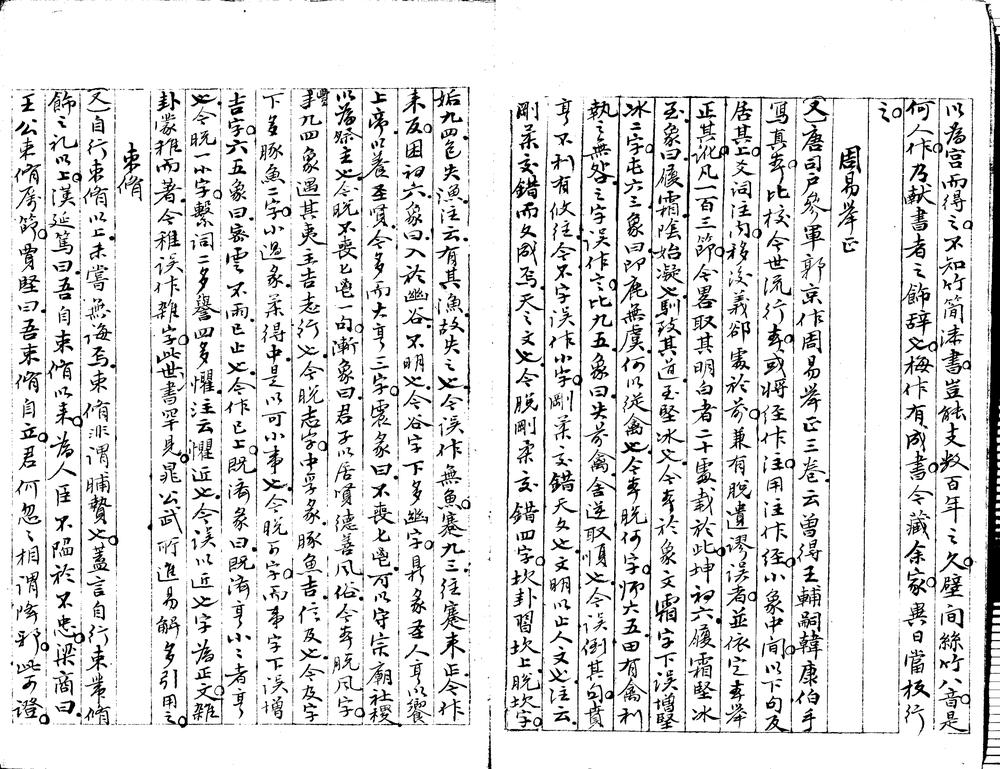 以為宮而得之不知竹簡漆書豈能支数百年之久壁间絲竹八音是
何人作乃献書者之飾辞也梅作有成書今藏余家異日當梓行
之
周易举正
又唐司户參軍郭京作周易举正三卷云曽得王輔嗣韓康伯手
写真本比校今世流行本或将经作注用注作经小象中间以下句反
居其上爻词注内移後義却處於前兼有脱遺謬误者並依定本举
正其讹凡一百三節今畧取其明白者二十處載於此坤初六履霜堅冰
至象曰履霜陰始凝也馴致其道至堅冰也今本於象文霜字下误增堅
冰二字屯六三象曰即鹿無虞何以従禽也今本脱何字师六五田有禽利
執之無咎之字误作言比九五象曰失前禽舍逆取顺也今误倒其句賁
亨不利有攸往今不字误作小字剛柔交錯天文也文明以止人文也注云
剛柔交錯而文成焉天之文也今脱剛柔交錯四字坎卦習坎上脱坎字
姤九四包失漁注云有其漁故失之也今误作無魚蹇九三往蹇来正今作
来反困初六象曰入於幽谷不明也今谷字下多幽字鼎彖聖人亨以饗
上帝以養至賢今多而大亨三字震彖曰不喪匕鬯可以守宗廟社稷
以為祭主也今脱不喪匕鬯一句漸象曰君子以居賢德善风俗今本脱风字
豐九四象遇其夷主吉志行也今脱志字中孚彖豚鱼吉信及也今及字
下多豚魚二字小過彖柔得中是以可小事也今脱可字而事字下误增
吉字六五象曰密雲不雨已止也今作已上既済彖曰既濟亨小小者亨
也今脱一小字繫词二多譽四多懼注云懼近也今误以近也字為正文雜
卦蒙稚而著今稚误作雜字此世書罕見晁公武所進易解多引用之
束脩
又自行束脩以上未嘗無诲焉束脩非谓脯贄也蓋言自行束带脩
飾之礼以上漢延篤曰吾自束脩以来為人臣不陷於不忠梁商曰
王公束脩厲節賈堅曰吾束脩自立君何忽之相谓降邪此可證